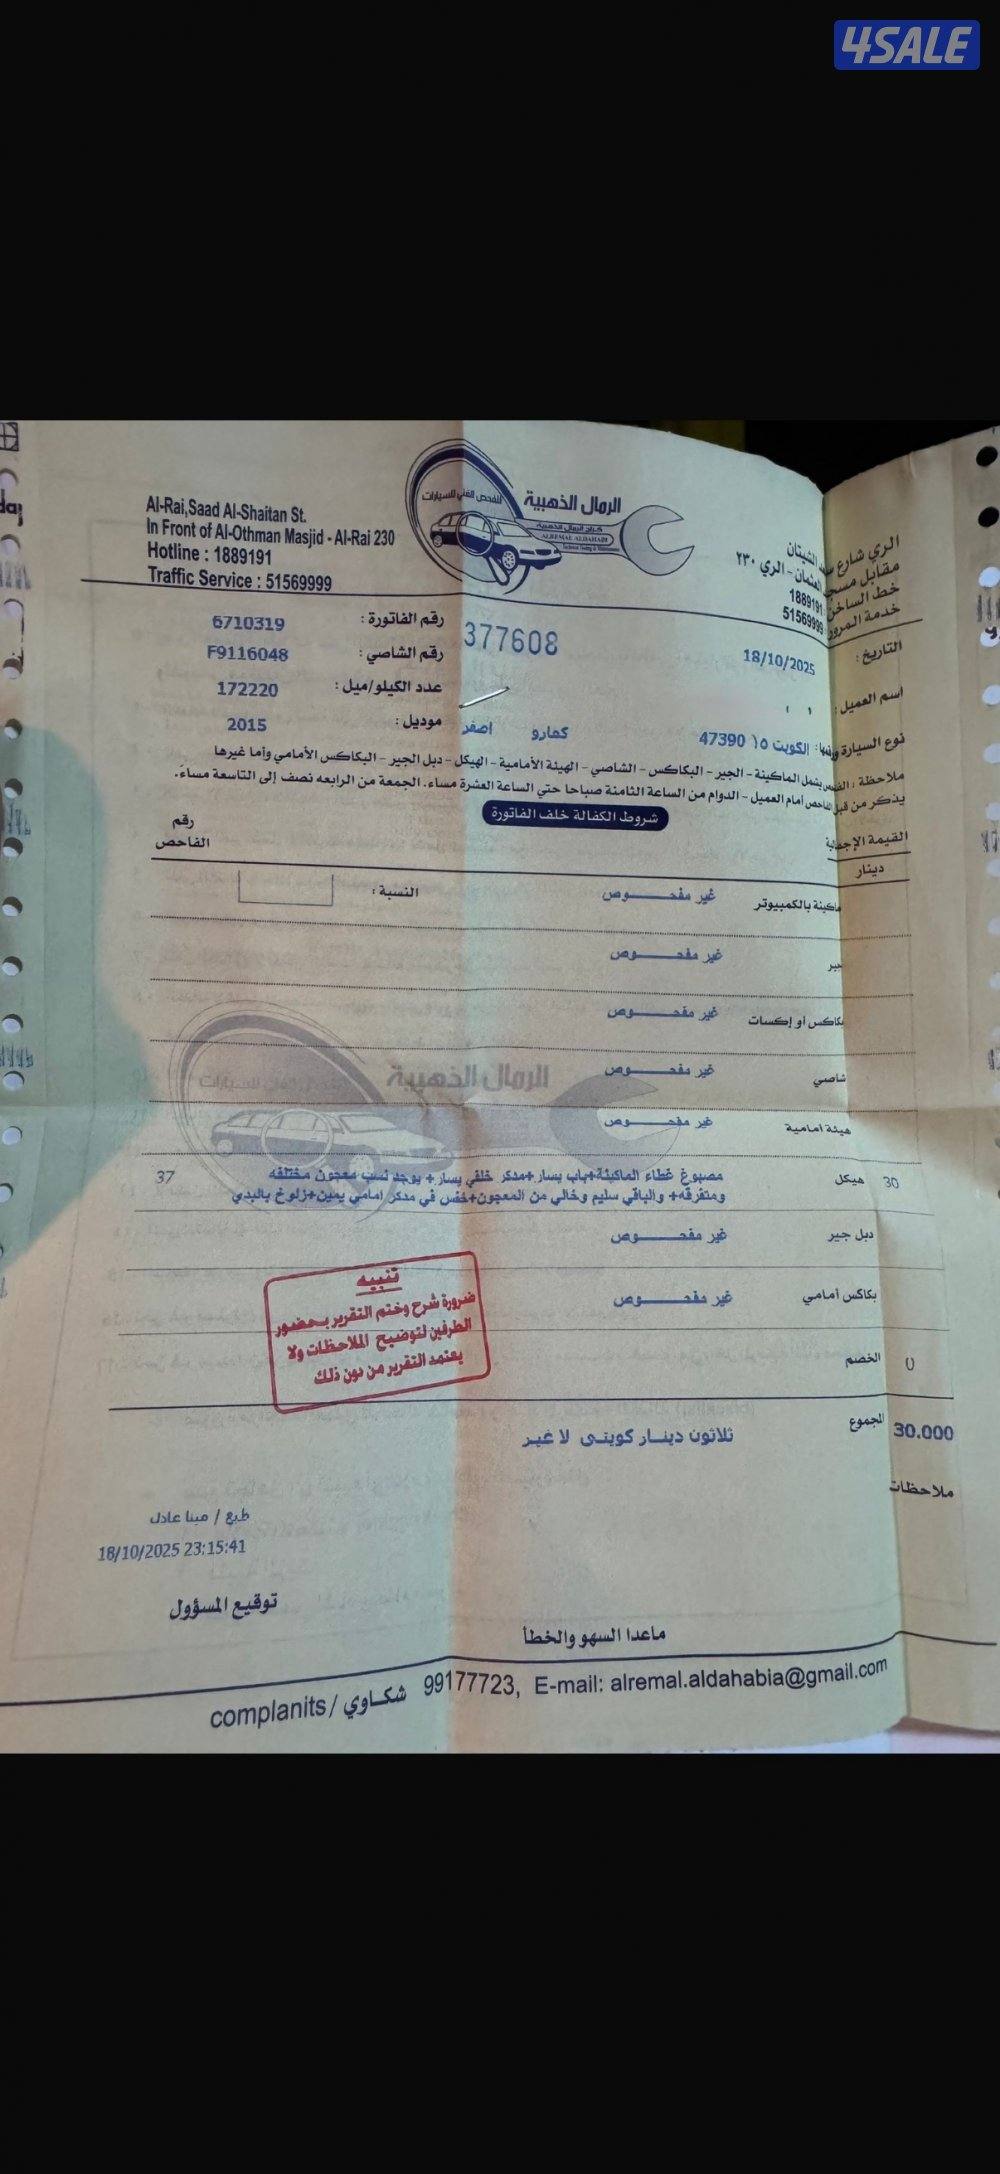 4SALE
الرمال الذهبية
للفحص الفني للسيارات
كراج الرمال الذهبية
ALREMAL ALDAHABI
Al-Rai,Saad Al-Shaitan St.
In Front of Al-Othman Masjid - Al-Rai 230
Hotline : 1889191
Traffic Service : 51569999
الري شارع سعد الشيتان
مقابل مسجد العثمان - الري ٢٣٠
خط الساخن 1889191
خدمة المرور 51569999
التاريخ : 18/10/2025
377608
رقم الفاتورة : 6710319
رقم الشاصي : F9116048
اسم العميل :
عدد الكيلو/ميل : 172220
نوع السيارة ورقمها : الكويت ١٥ 47390 كمارو اصفر
موديل : 2015
ملاحظة : الفحص يشمل الماكينة - الجير - البكاكس - الشاصي - الهيئة الأمامية - الهيكل - دبل الجير - البكاكس الأمامي وأما غيرها
يذكر من قبل الفاحص أمام العميل - الدوام من الساعة الثامنة صباحا حتي الساعة العشرة مساء. الجمعة من الرابعه نصف إلى التاسعة مساءً.
شروط الكفالة خلف الفاتورة
القيمة الإجمالية
دينار
رقم
الفاحص
ماكينة بالكمبيوتر غير مفحـــوص النسبة :
جير غير مفحـــوص
بكاكس أو إكسات غير مفحـــوص
شاصي غير مفحـــوص
هيئة امامية غير مفحـــوص
30 هيكل مصبوغ غطاء الماكينة+باب يسار+مدكر خلفي يسار+ يوجد نسب معجون مختلفه 37
ومتفرقه+ والباقي سليم وخالي من المعجون+خفس في مدكر امامي يمين+زلوخ بالبدي
دبل جير غير مفحـــوص
بكاكس أمامي غير مفحـــوص
الخصم 0
تنبيه
ضرورة شرح وختم التقرير بحضور
الطرفين لتوضيح الملاحظات ولا
يعتمد التقرير من دون ذلك
30.000 المجموع ثلاثون دينار كويتى لا غير
ملاحظات
طبع / مينا عادل
18/10/2025 23:15:41
توقيع المسؤول
ماعدا السهو والخطأ
complanits / شكاوي 99177723, E-mail: alremal.aldahabia@gmail.com